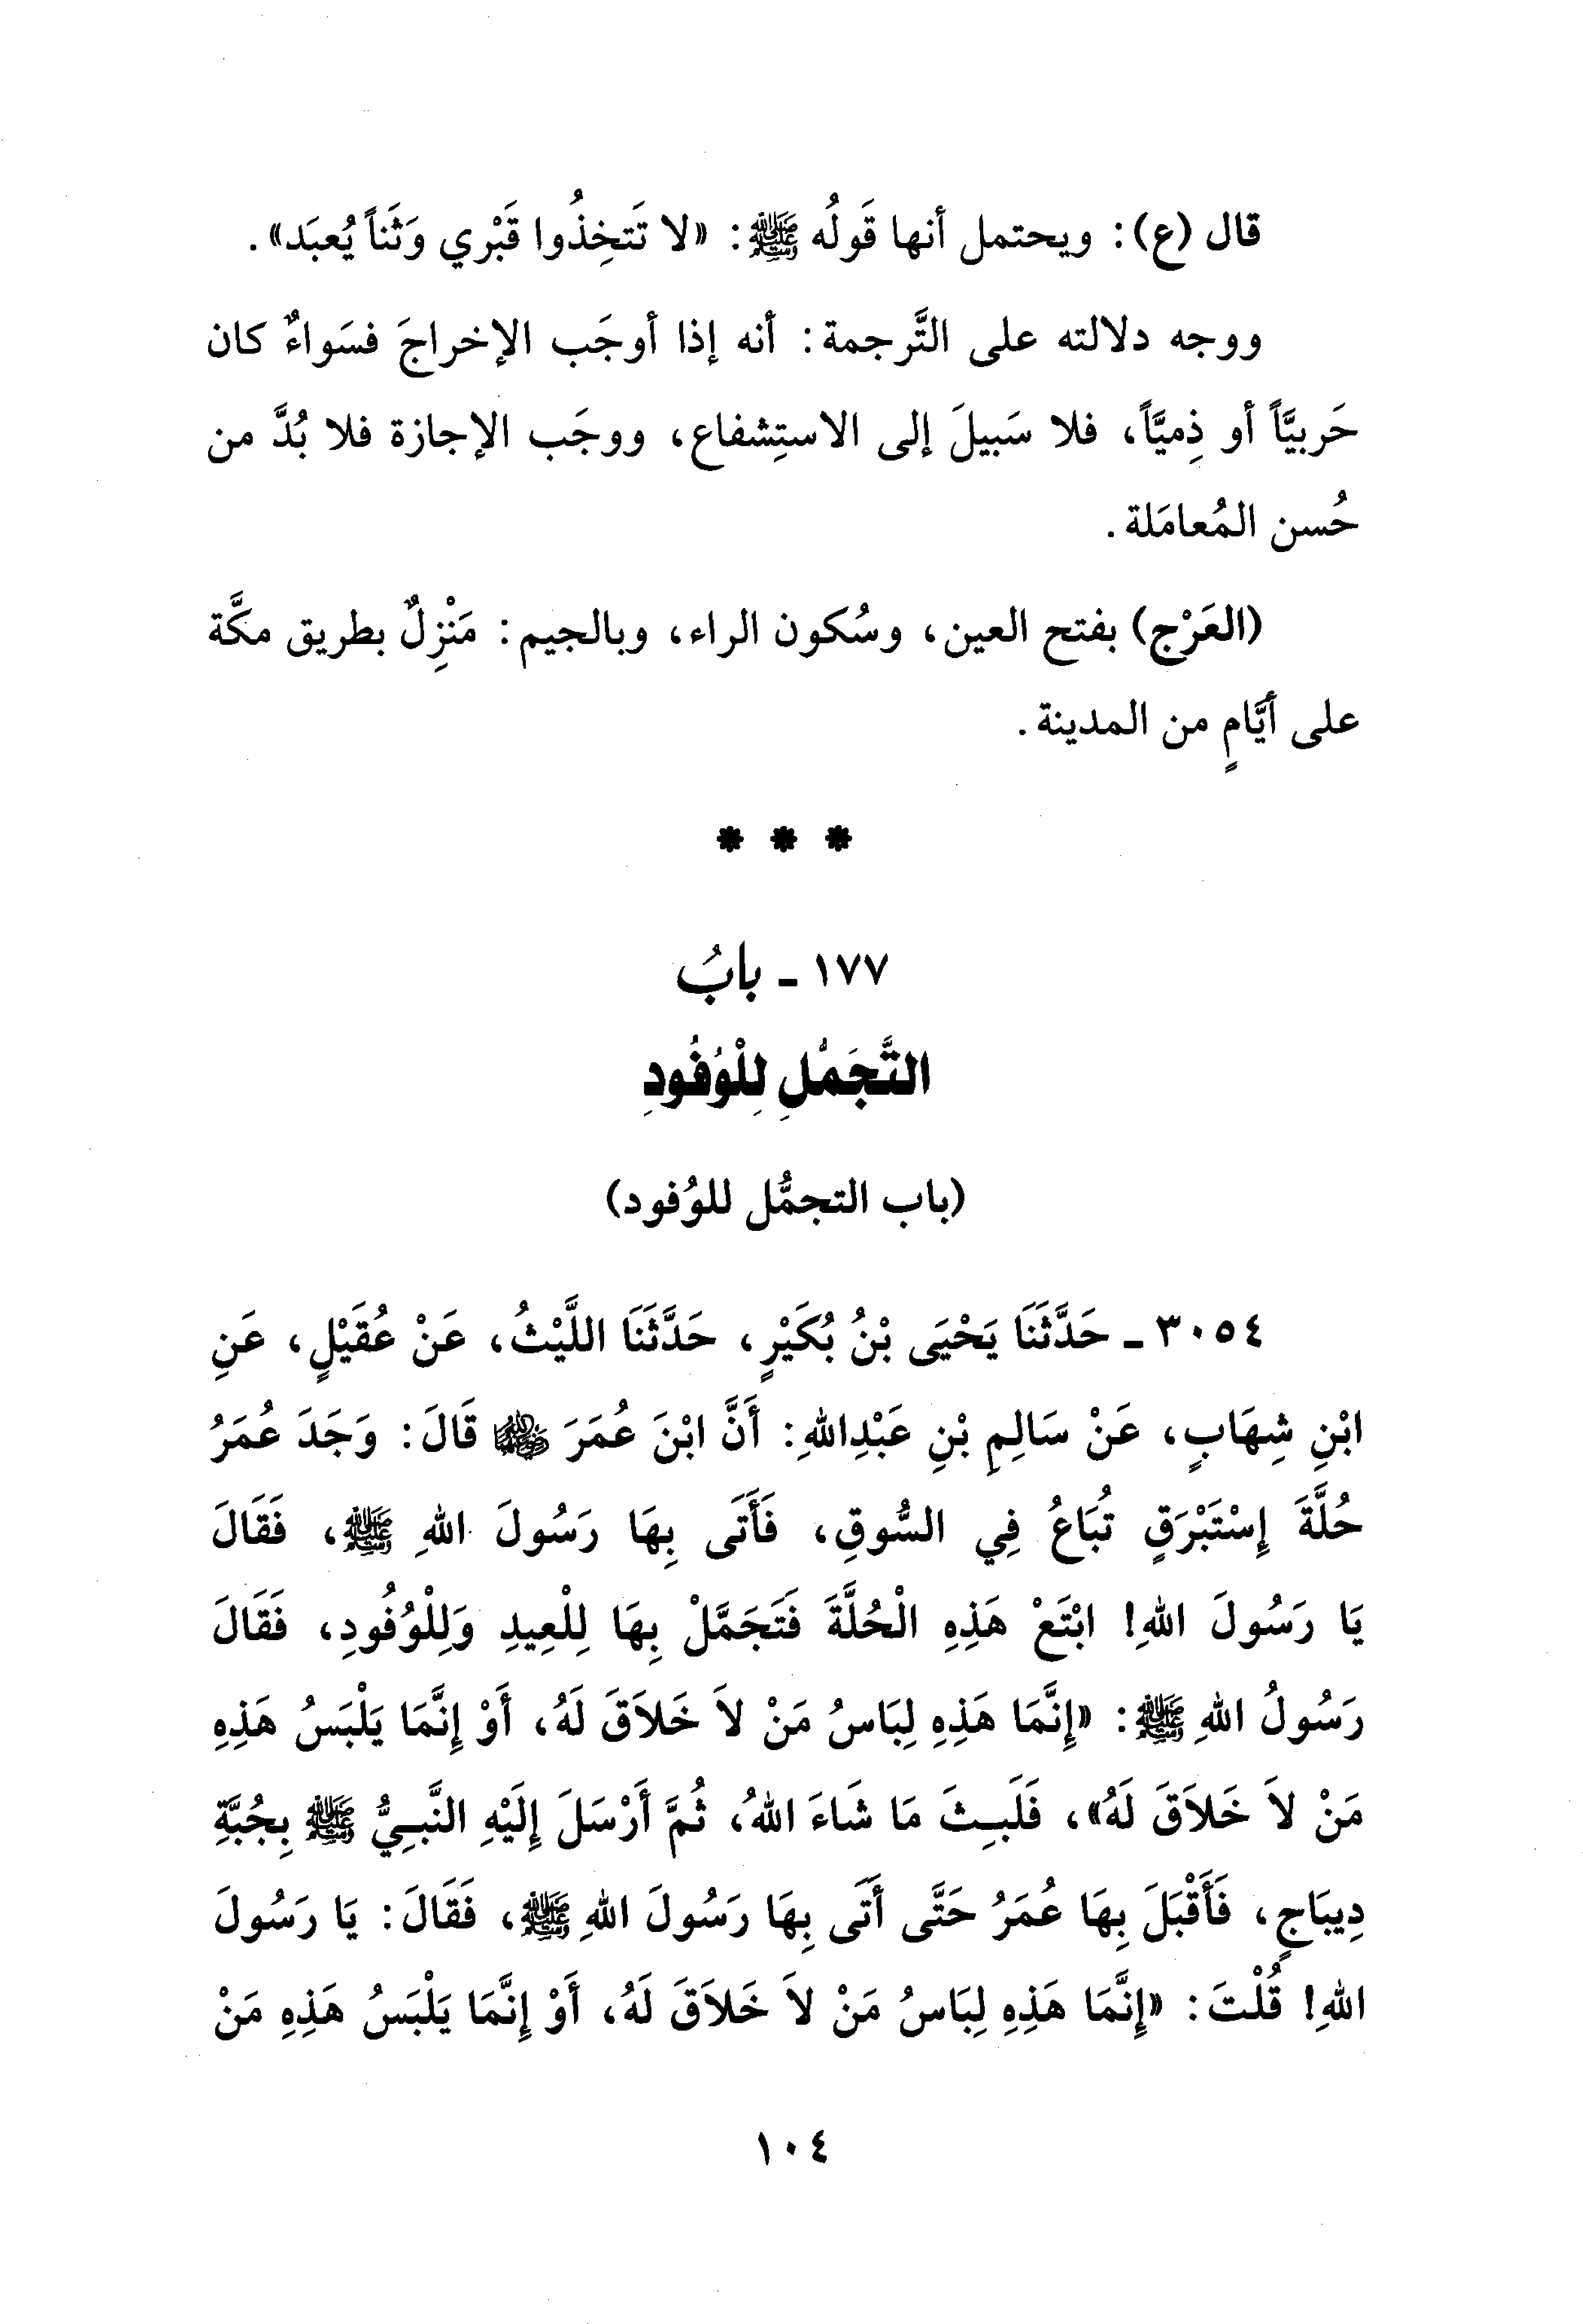 قال (ع): ويحتمل أنها قَولُه ﷺ: «لا تَتخِذُوا قَبْري وَثَناً يُعبَد».
ووجه دلالته على التَّرجمة: أنه إذا أوجَب الإخراجَ فسَواءٌ كان
حَربيَّاً أو ذِميَّاً، فلا سَبيلَ إلى الاستِشفاع، ووجَب الإجازة فلا بُدَّ من
حُسن المُعامَلة.
(العَرْج) بفتح العين، وسُكون الراء، وبالجيم: مَنْزِلٌ بطريق مكَّة
على أيَّامٍ من المدينة.
* * *
١٧٧ - بابُ
التَّجَمُّلِ لِلْوُفُودِ
(باب التجمُّل للوُفود)
٣٠٥٤ - حَدَّثَنَا يَحْيَى بْنُ بُكَيْرٍ، حَدَّثَنَا اللَّيْثُ، عَنْ عُقَيْلٍ، عَنِ
ابْنِ شِهَابٍ، عَنْ سَالِمِ بْنِ عَبْدِاللهِ: أَنَّ ابْنَ عُمَرَ ﵄ قَالَ: وَجَدَ عُمَرُ
حُلَّةَ إِسْتَبْرَقٍ تُبَاعُ فِي السُّوقِ، فَأَتَى بِهَا رَسُولَ اللهِ ﷺ، فَقَالَ
يَا رَسُولَ اللهِ! ابْتَعْ هَذِهِ الْحُلَّةَ فَتَجَمَّلْ بِهَا لِلْعِيدِ وَلِلْوُفُودِ، فَقَالَ
رَسُولُ اللهِ ﷺ: «إِنَّمَا هَذِهِ لِبَاسُ مَنْ لاَ خَلاَقَ لَهُ، أَوْ إِنَّمَا يَلْبَسُ هَذِهِ
مَنْ لاَ خَلاَقَ لَهُ»، فَلَبِثَ مَا شَاءَ اللهُ، ثُمَّ أَرْسَلَ إِلَيْهِ النَّبِيُّ ﷺ بِجُبَّةِ
دِيبَاجٍ، فَأَقْبَلَ بِهَا عُمَرُ حَتَّى أَتَى بِهَا رَسُولَ اللهِ ﷺ، فَقَالَ: يَا رَسُولَ
اللهِ! قُلْتَ: «إِنَّمَا هَذِهِ لِبَاسُ مَنْ لاَ خَلاَقَ لَهُ، أَوْ إِنَّمَا يَلْبَسُ هَذِهِ مَنْ
١٠٤